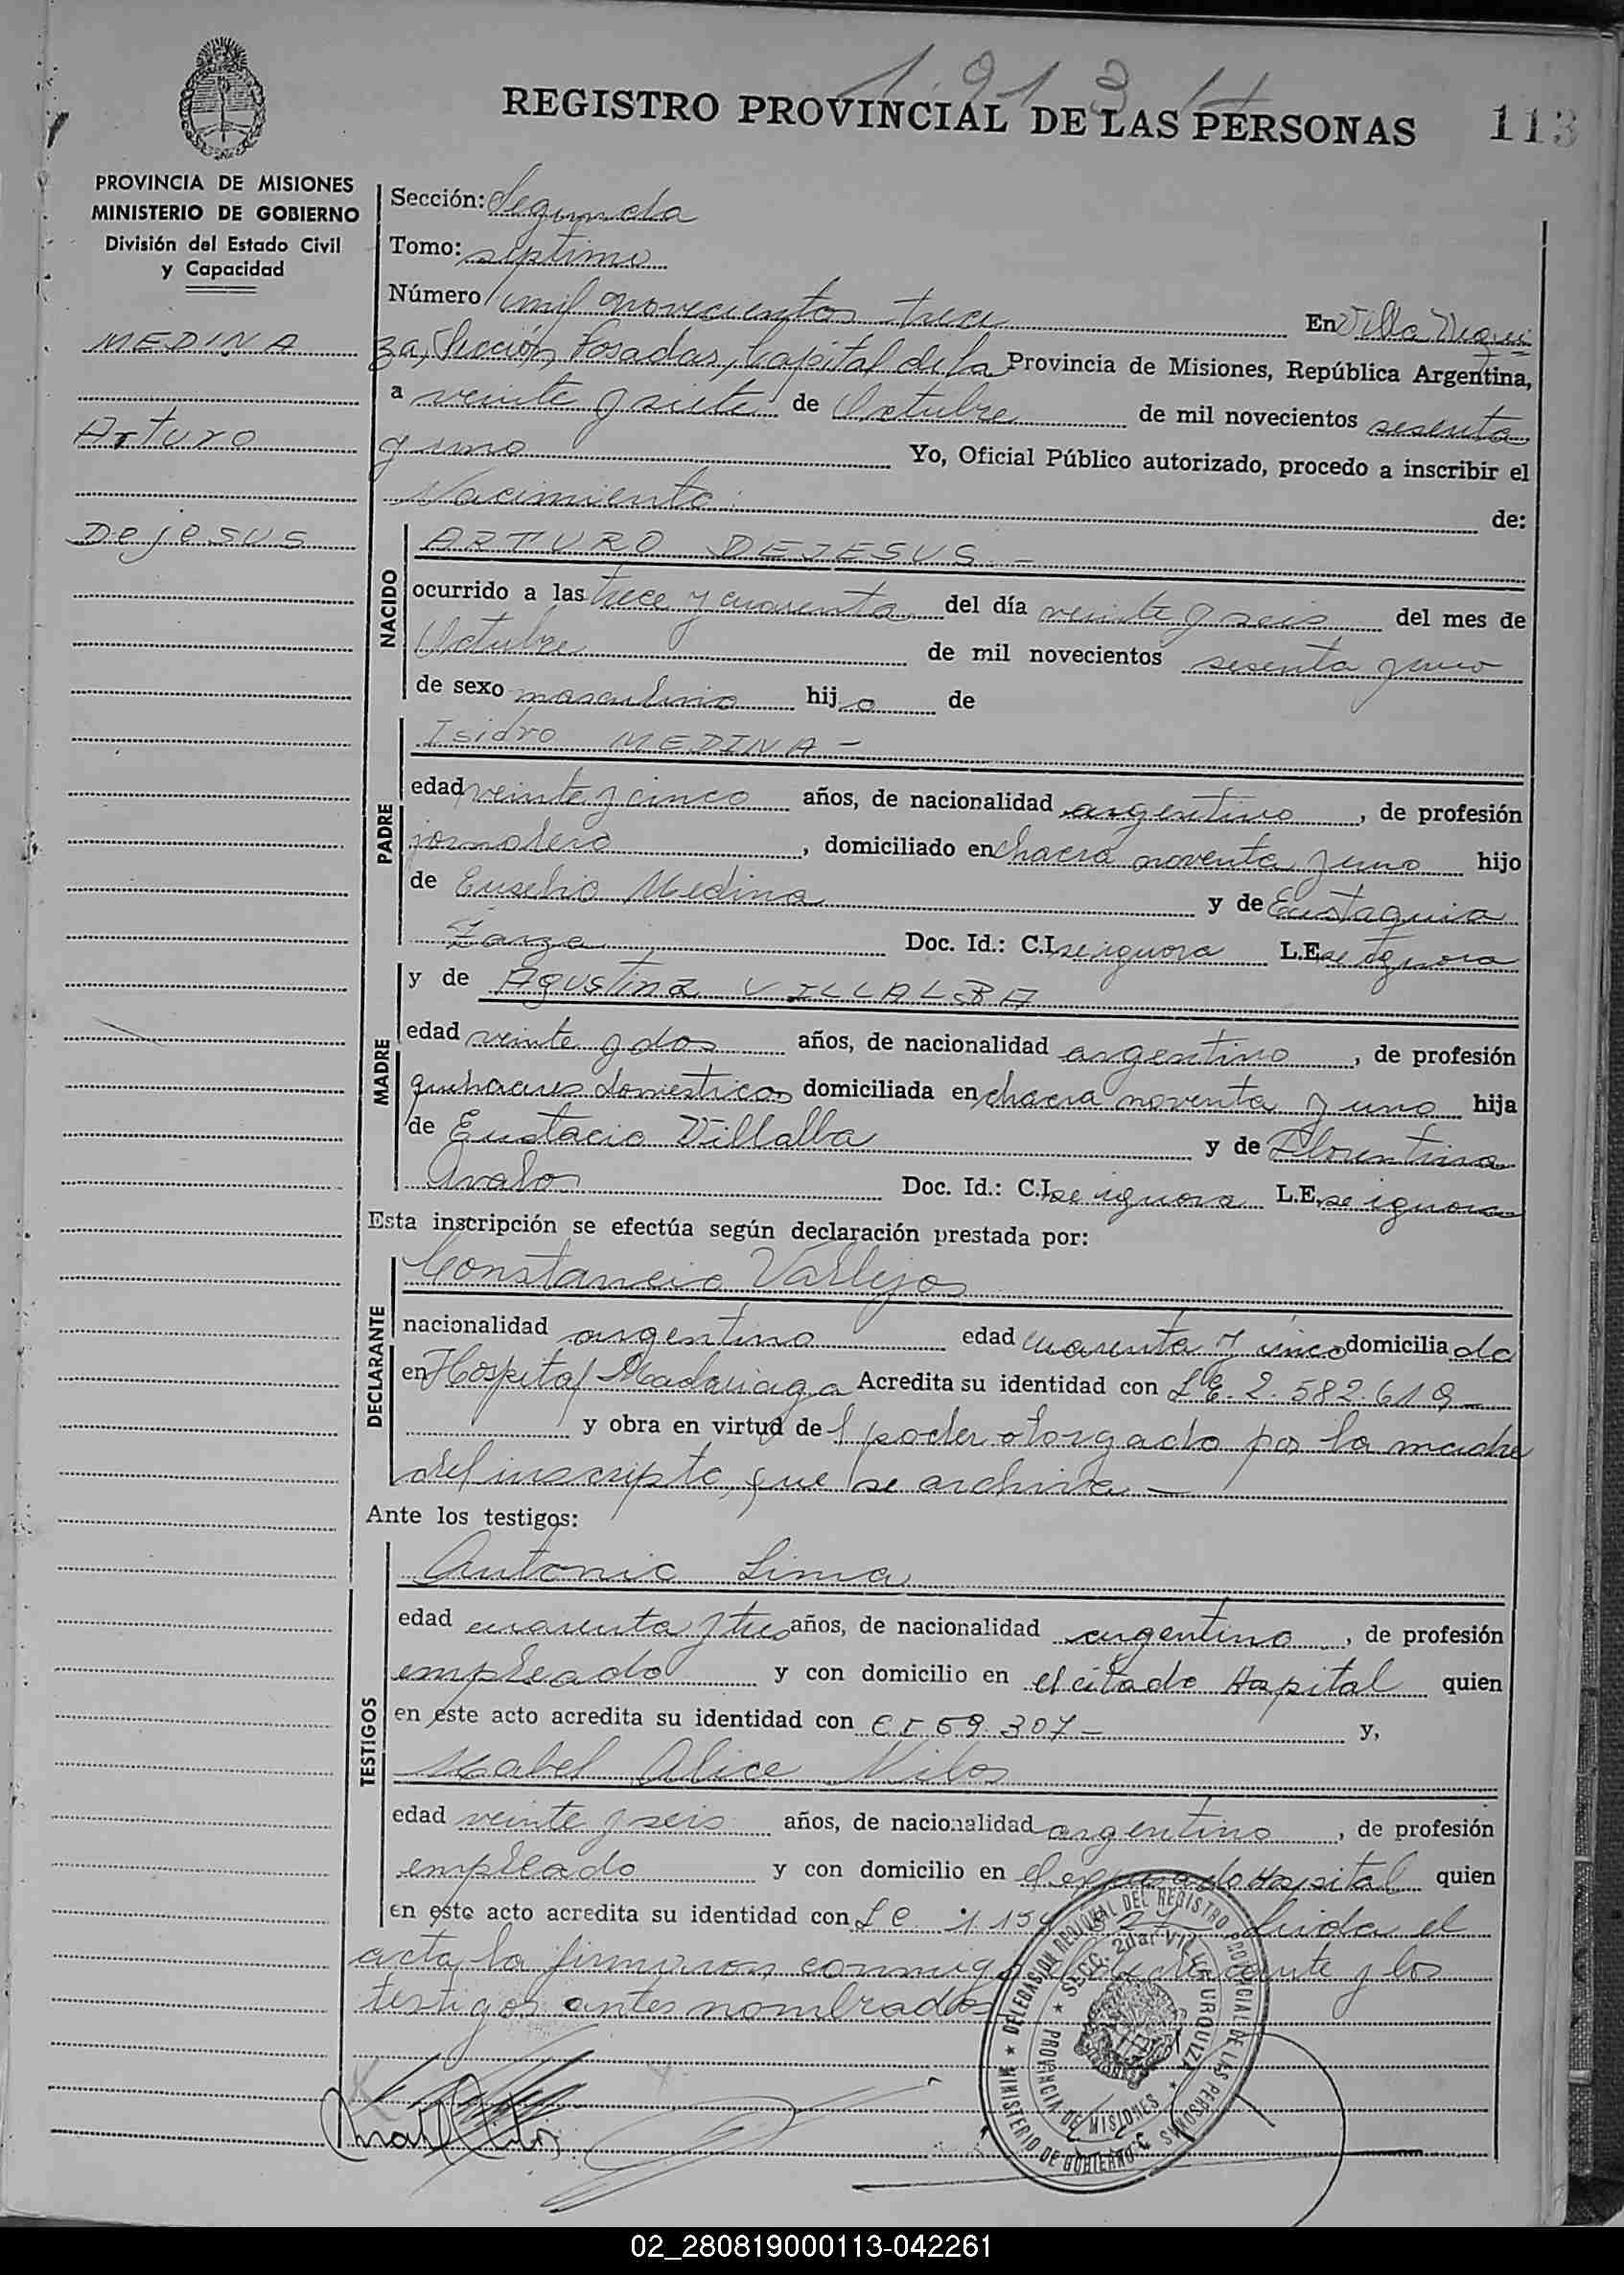 1913
REGISTRO PROVINCIAL DE LAS PERSONAS 113
PROVINCIA DE MISIONES
MINISTERIO DE GOBIERNO
División del Estado Civil
y Capacidad
MEDINA
Arturo
DeJesus
Sección: Segunda
Tomo: septimo
Número mil novecientos trece En Villa Urqui
za, Sección Posadas, Capital de la Provincia de Misiones, República Argentina,
a veinte y siete de Octubre de mil novecientos sesenta
y uno Yo, Oficial Público autorizado, procedo a inscribir el
Nacimiento de:
NACIDO
ARTURO DEJESUS -
ocurrido a las trece y cuarenta del día veinte y seis del mes de
Octubre de mil novecientos sesenta y uno
de sexo masculino hijo de
PADRE
Isidro MEDINA -
edad veinte y cinco años, de nacionalidad argentino, de profesión
jornalero, domiciliado en chacra noventa y uno hijo
de Eusebio Medina y de Eustaquia
Zarza Doc. Id.: C.I. se ignora L.E. se ignora
MADRE
y de Agustina VILLALBA
edad veinte y dos años, de nacionalidad argentino, de profesión
quehaceres domesticos domiciliada en chacra noventa y uno hija
de Eustacio Villalba y de Florentina
Avalo Doc. Id.: C.I. se ignora L.E. se ignora
Esta inscripción se efectúa según declaración prestada por:
DECLARANTE
Constancio Vallejos
nacionalidad argentino edad cuarenta y cinco domiciliado
en Hospital Madariaga Acredita su identidad con L.E. 2.582.619 -
y obra en virtud del poder otorgado por la madre
del inscripto, que se archiva -
Ante los testigos:
TESTIGOS
Antonio Lima
edad cuarenta y tres años, de nacionalidad argentino, de profesión
empleado y con domicilio en el citado Hospital quien
en este acto acredita su identidad con C I 59.307 - y,
Mabel Alice Nilos
edad veinte y seis años, de nacionalidad argentino, de profesión
empleado y con domicilio en el expresado Hospital quien
en este acto acredita su identidad con L C 1.154 Leida el
acta, la firmaron conmigo el declarante y los
testigos antes nombrados
★ DELEGASION REGIONAL DEL REGISTRO PROVINCIAL DE LAS PERSONAS
MINISTERIO DE GOBIERNO
★ SECC. 2da. VILLA URQUIZA ★
PROVINCIA DE MISIONES
02_280819000113-042261